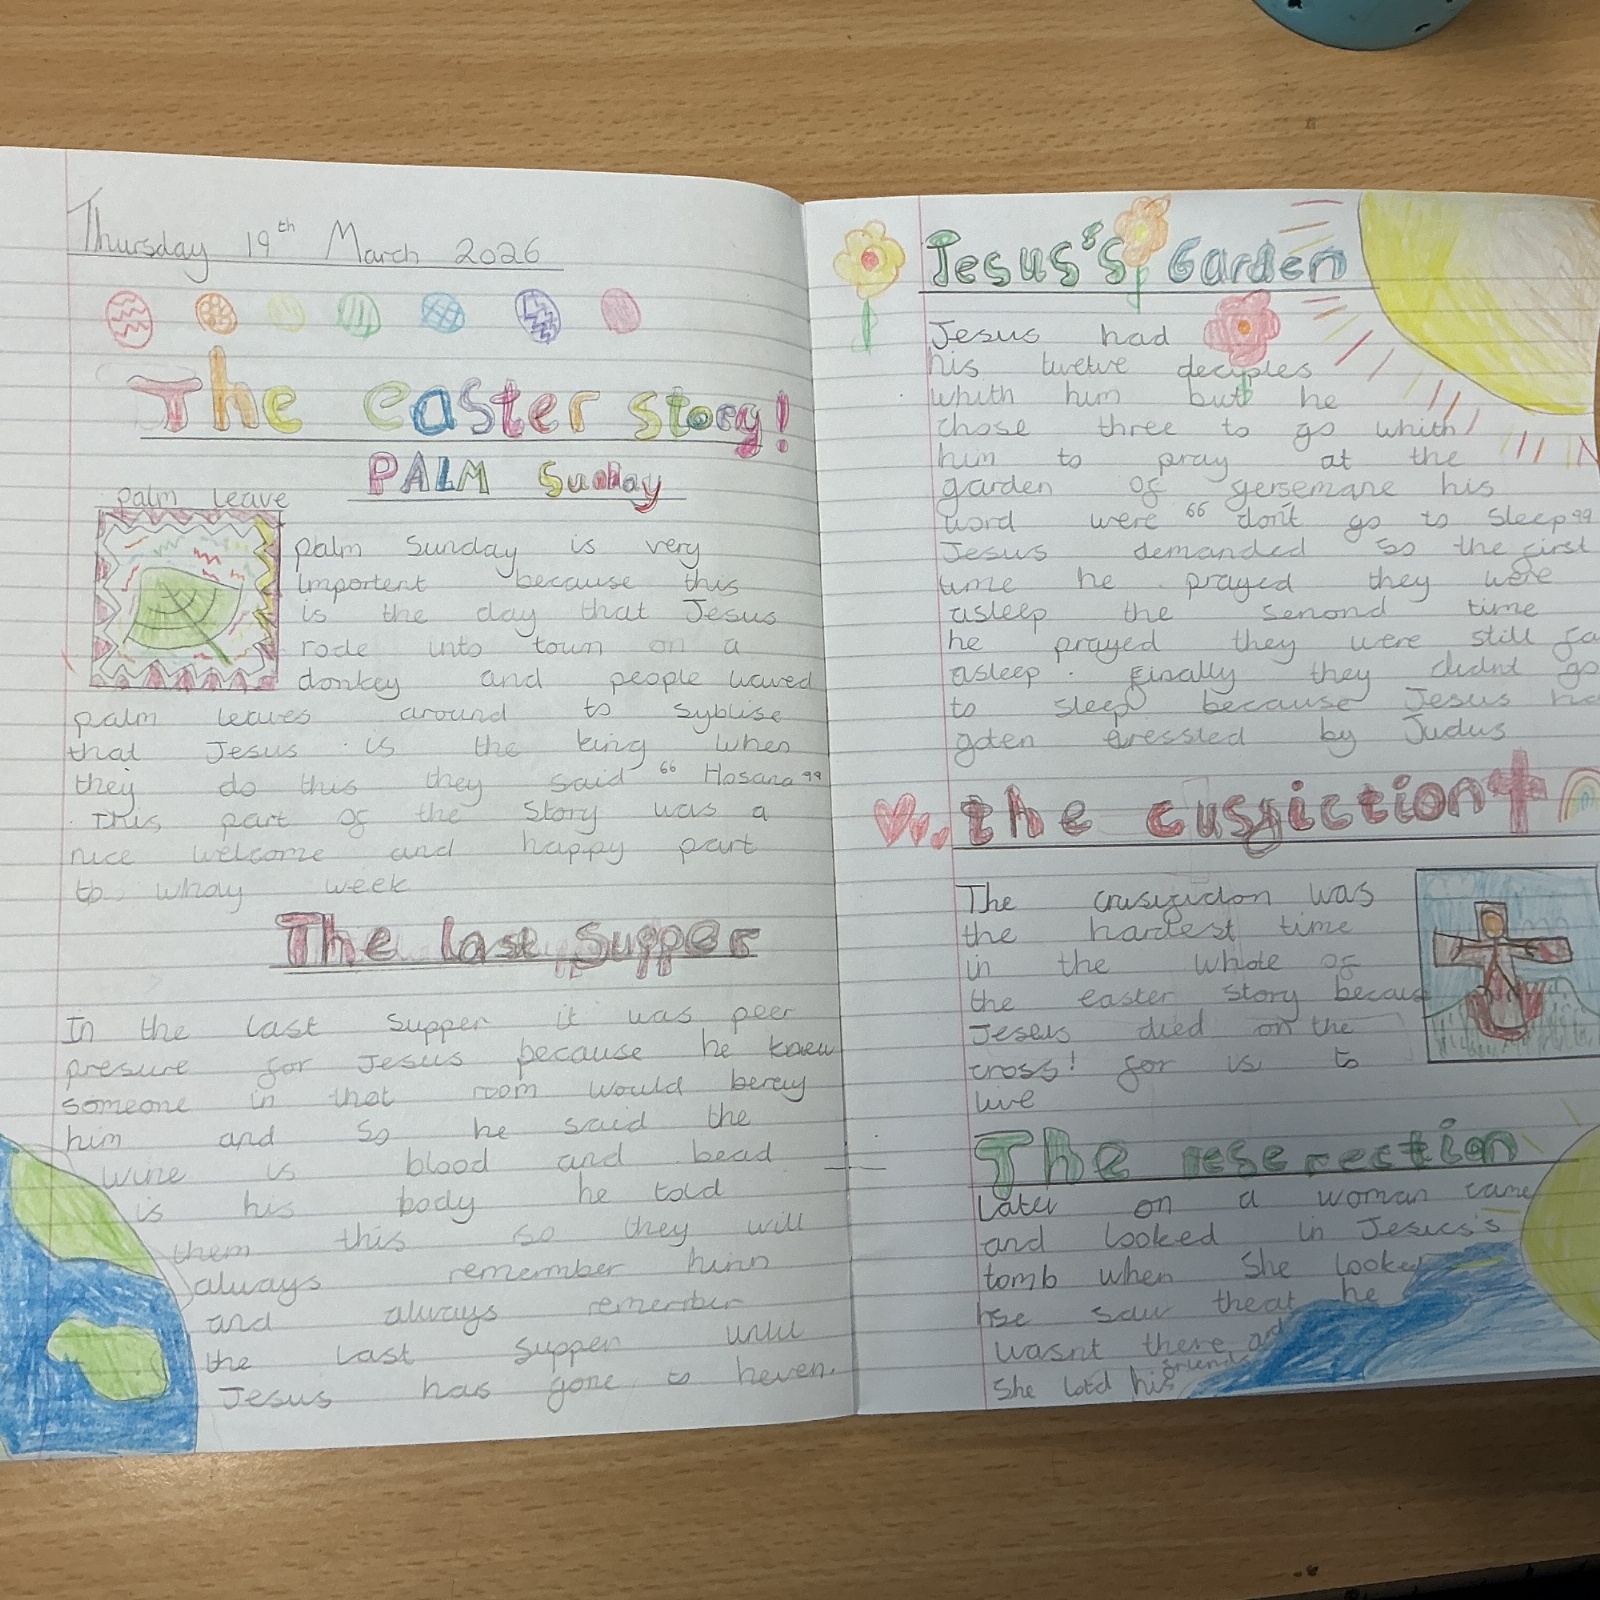 Thursday 19th March 2026
The easter story!
PALM Sunday
palm leave
palm Sunday is very
Importent because this
is the day that Jesus
rode into town on a
donkey and people waved
palm leaves around to syblise
that Jesus is the king when
they do this they said " Hosana "
. This part of the story was a
nice welcome and happy part
to whoay week
The Last Supper
In the last supper it was peer
presure for Jesus because he knew
someone in that room would beray
him and so he said the
wine is blood and bead
is his body he told
them this so they will
always remember him
and always remember
the last supper until
Jesus has gone to heven.
Jesus's Garden
Jesus had
his twelve deciples
whith him but he
chose three to go whith
him to pray at the
garden of gersemane his
word were " don't go to sleep "
Jesus demanded so the first
time he prayed they were
asleep the senond time
he prayed they were still
asleep. finally they didnt go
to sleep because Jesus
goten erressted by Judus
the cusfiction
The crusifidon was
the hardest time
in the whole of
the easter story becaus
Jeseus died on the
cross! for us to
live
The reserection
Later on a woman came
and looked in Jesus's
tomb when she looked
hse saw theat he
wasnt there and
She lotd his friends